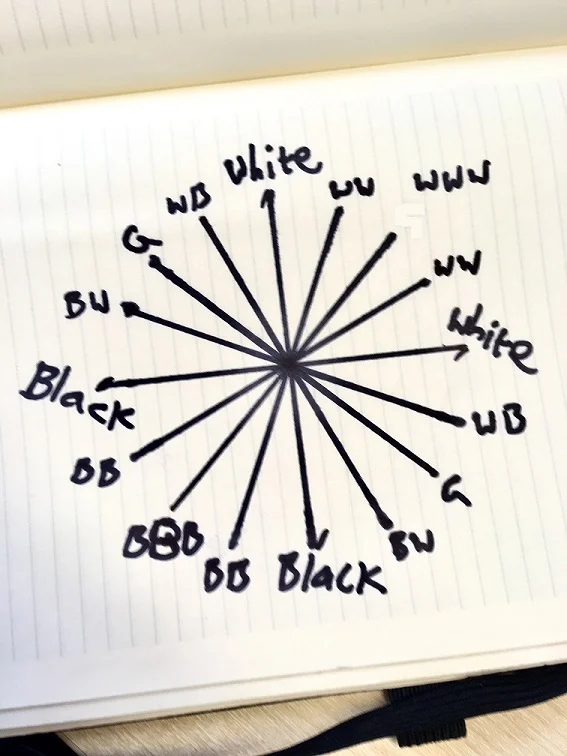 White
WB
WW
WWW
G
WW
BW
White
Black
WB
BB
G
BBB
BW
BB
Black